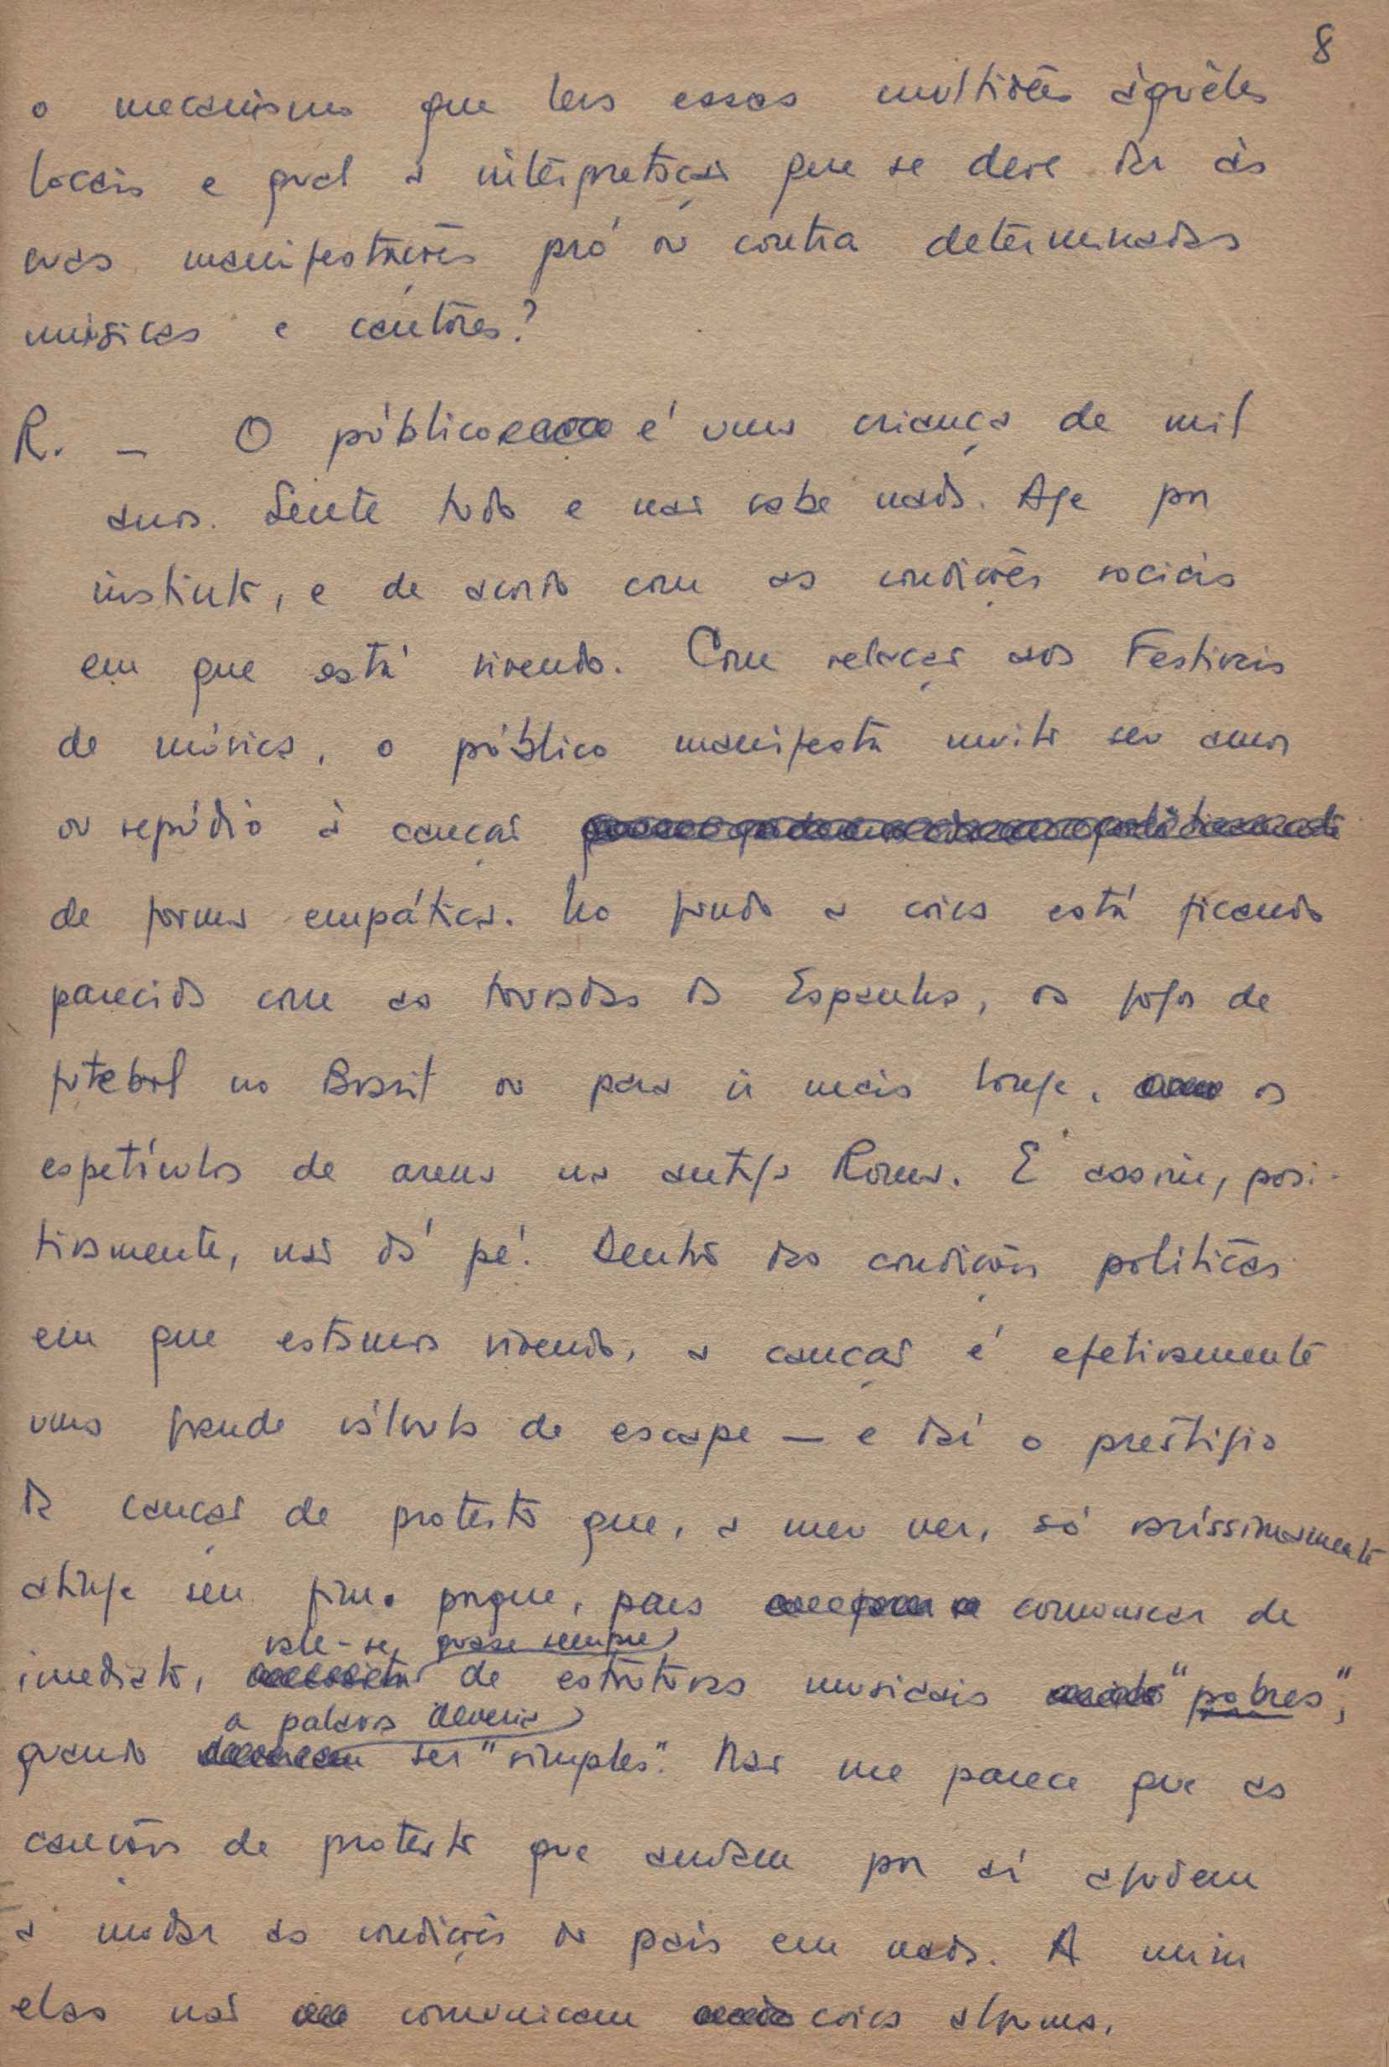 8
o mecanismo que leva essas multidões àquêles
locais e qual a interpretação que se deve dar às
suas manifestações pró ou contra determinadas
músicas e cantores?
R. — O público é uma criança de mil
anos. Sente tudo e não sabe nada. Age por
instinto, e de acordo com as condições sociais
em que está vivendo. Com relação aos Festivais
de música, o público manifesta muito seu amor
ou repúdio à canção
de forma empática. No fundo a coisa está ficando
parecida com as touradas da Espanha, os jogos de
futebol no Brasil ou para ir mais longe, os
espetáculos de arena na antiga Roma. E assim, posi-
tivamente, não dá pé! Dentro das condições políticas
em que estamos vivendo, a canção é efetivamente
uma grande válvula de escape — e daí o prestígio
da canção de protesto que, a meu ver, só raríssimamente
atinge seu fim. porque, para comunicar de
imediato, vale-se, quase sempre, de estruturas musicais "pobres",
quando a palavra deveria ser "simples". Não me parece que as
canções de protesto que andam por aí ajudem
a mudar as condições do país em nada. A mim
elas não comunicam coisa alguma.